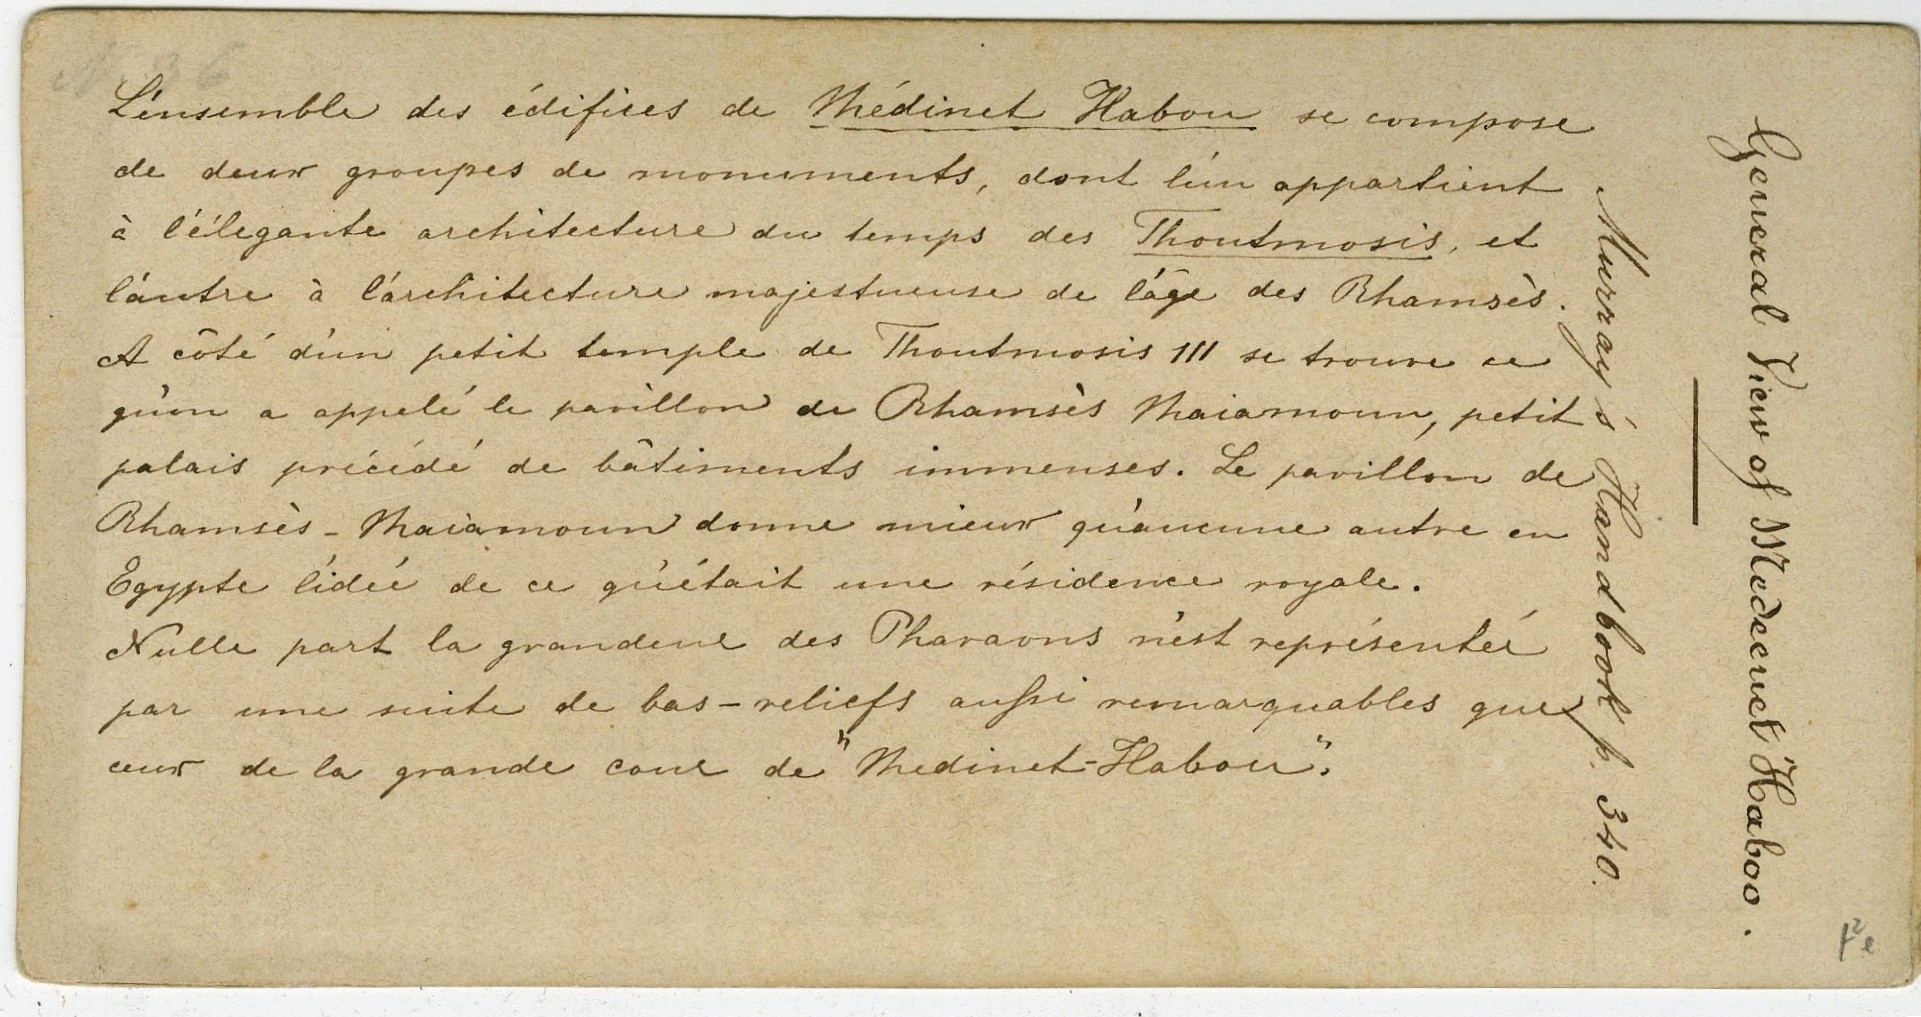 L'ensemble des édifices de Médinet Habou se compose
de deux groupes de monuments, dont l'un appartient
à l'élegante architecture du temps des Thoutmosis, et
l'autre à l'architecture majestueuse de l'âge des Rhamsès.
A côté d'un petit temple de Thoutmosis III se trouve ce
qu'on a appelé le pavillon de Rhamsès Maiamoun, petit
palais précédé de bâtiments immenses. Le pavillon de
Rhamsès - Maiamoun donne mieux qu'aucune autre en
Egypte l'idée de ce qu'était une résidence royale.
Nulle part la grandeur des Pharaons n'est représentée
par une suite de bas-reliefs aussi remarquables que
ceux de la grande cour de "Medinet-Habou".
General View of Medeenet Haboo.
Murray's Handbook p. 340.